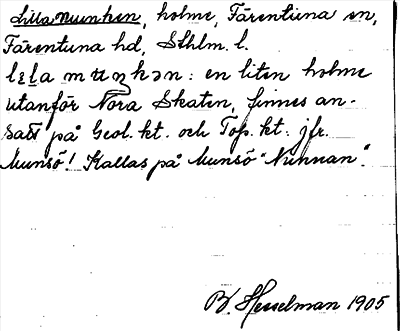 Lilla Munken, holme, Färentuna sn,
Färentuna hd, Sthlm. l.
en liten holme
utanför Nora Skaten, finnes an-
satt på Geol. kt. och Top. kt. jfr.
Munsö! Kallas på Munsö "Nunnan".
B. Hesselman 1905